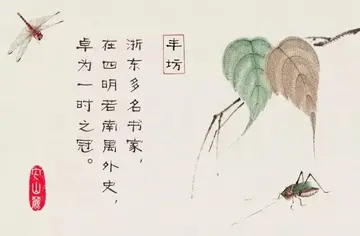 丰坊
浙东多名书家，
在四明若南禺外史，
卓为一时之冠。